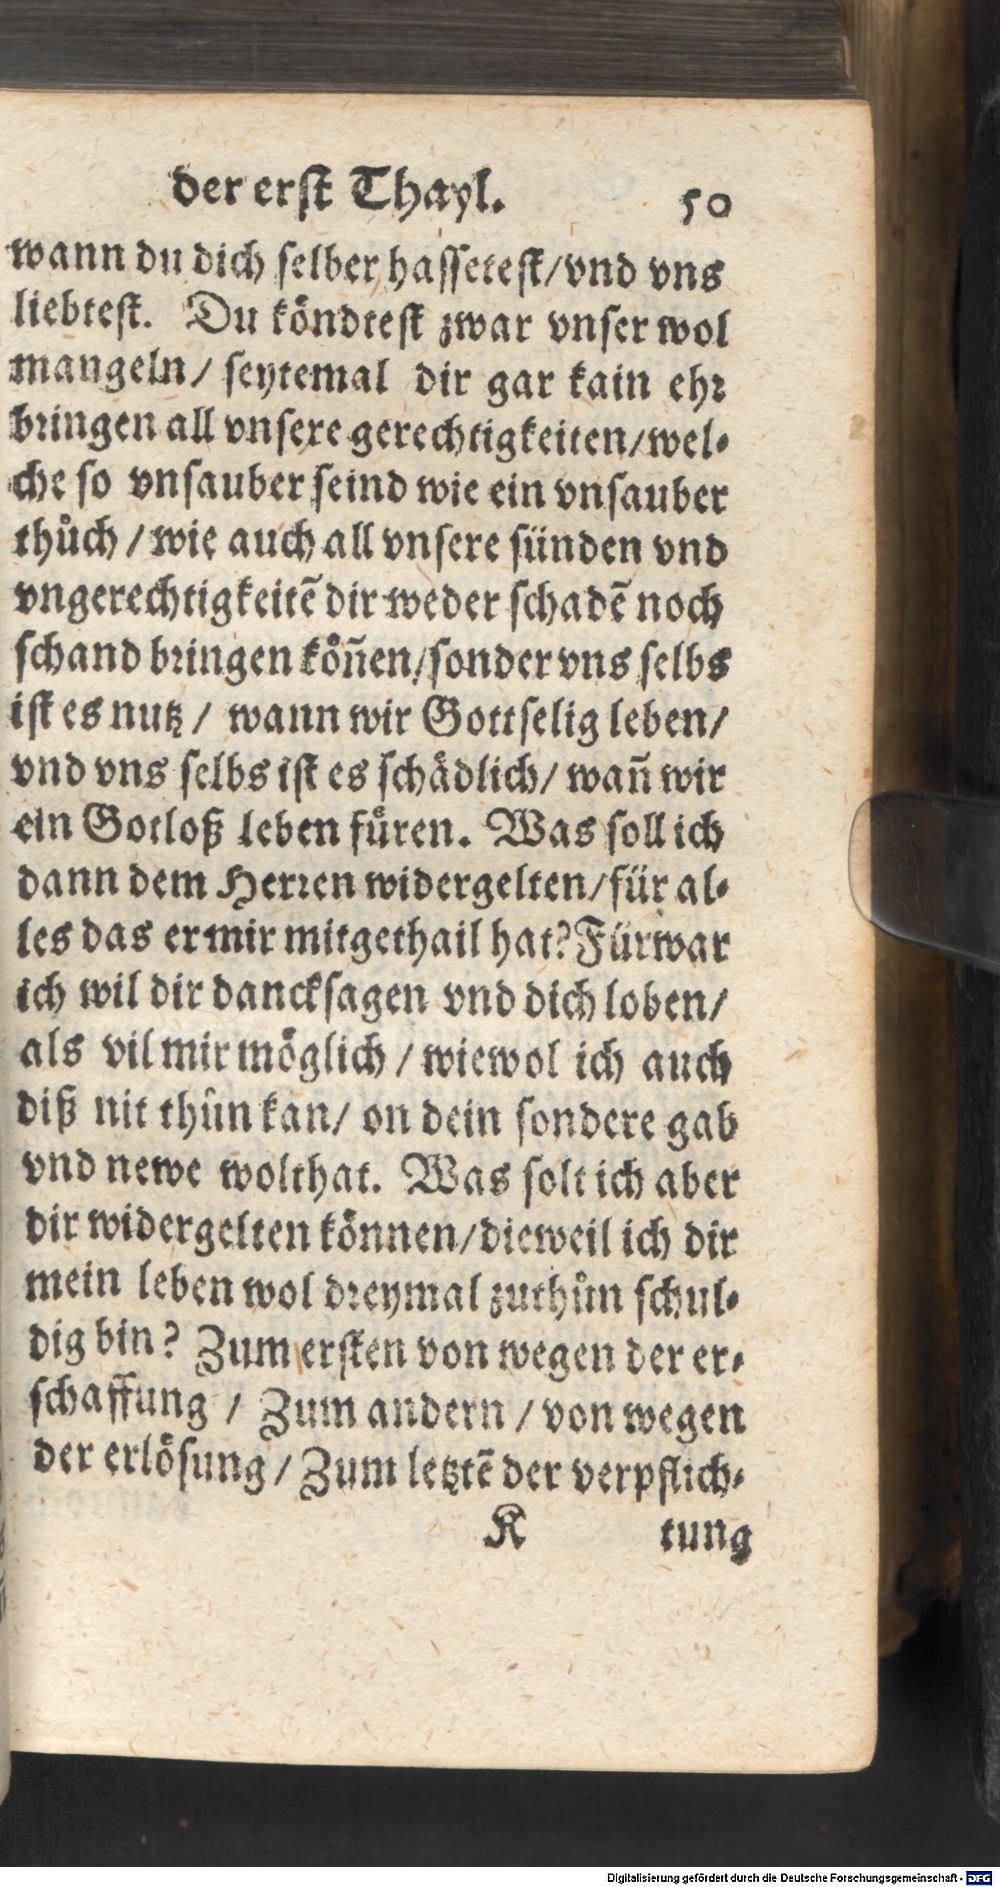 der erst Thayl. 50
wann du dich selber hassetest/vnd vns
liebtest. Du köndtest zwar vnser wol
mangeln/ seytemal dir gar kain ehr
bringen all vnsere gerechtigkeiten/wel-
che so vnsauber seind wie ein vnsauber
thůch / wie auch all vnsere sünden vnd
vngerechtigkeitē dir weder schadē noch
schand bringen köñen/sonder vns selbs
ist es nutz / wann wir Gottselig leben/
vnd vns selbs ist es schädlich/ wañ wir
ein Gotloß leben füren. Was soll ich
dann dem Herren widergelten/für al-
les das er mir mitgethail hat? Fürwar
ich wil dir dancksagen vnd dich loben/
als vil mir möglich / wiewol ich auch
diß nit thůn kan/ on dein sondere gab
vnd newe wolthat. Was solt ich aber
dir widergelten können/dieweil ich dir
mein leben wol dreymal zuthům schul-
dig bin? Zum ersten von wegen der er-
schaffung / Zum andern / von wegen
der erlösung / Zum letztē der verpflich-
K tung
Digitalisierung gefördert durch die Deutsche Forschungsgemeinschaft - DFG